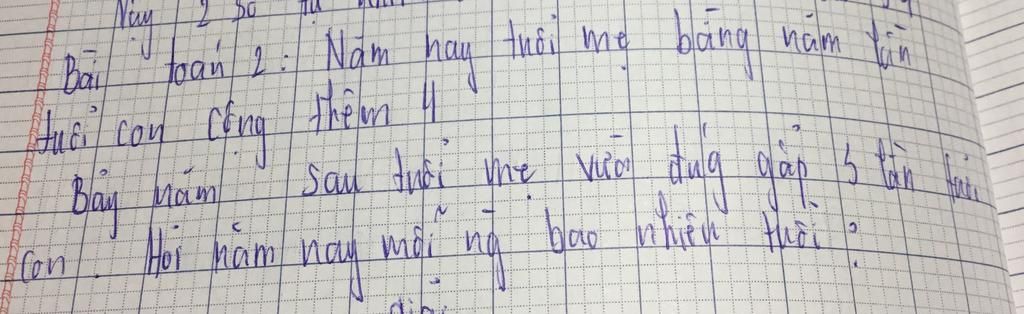 Vậy 2 số tự
Bài toán 2: Năm nay tuổi mẹ bằng năm lần
tuổi con cộng thêm 4
Bảy năm sau tuổi mẹ vừa đug gấp 3 lần tuổi
con. Hỏi năm nay mỗi ng bao nhiêu tuổi?